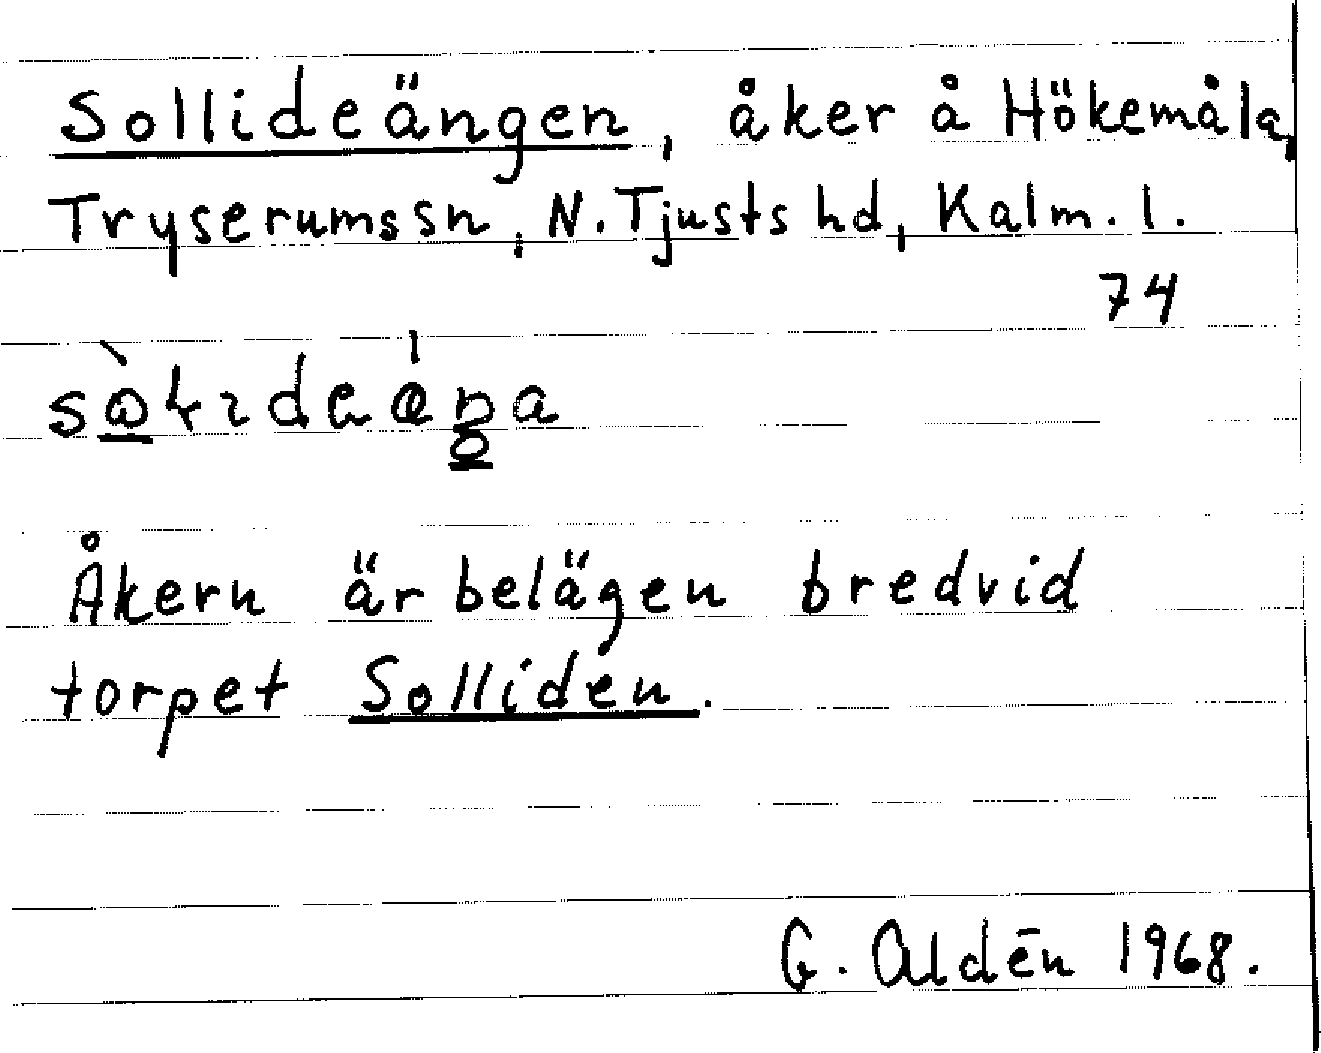 Sollideängen, åker å Hökemåla,
Tryserumssn, N. Tjusts hd, Kalm. l.
74
Åkern är belägen bredvid
torpet Solliden.
G. Aldén 1968.